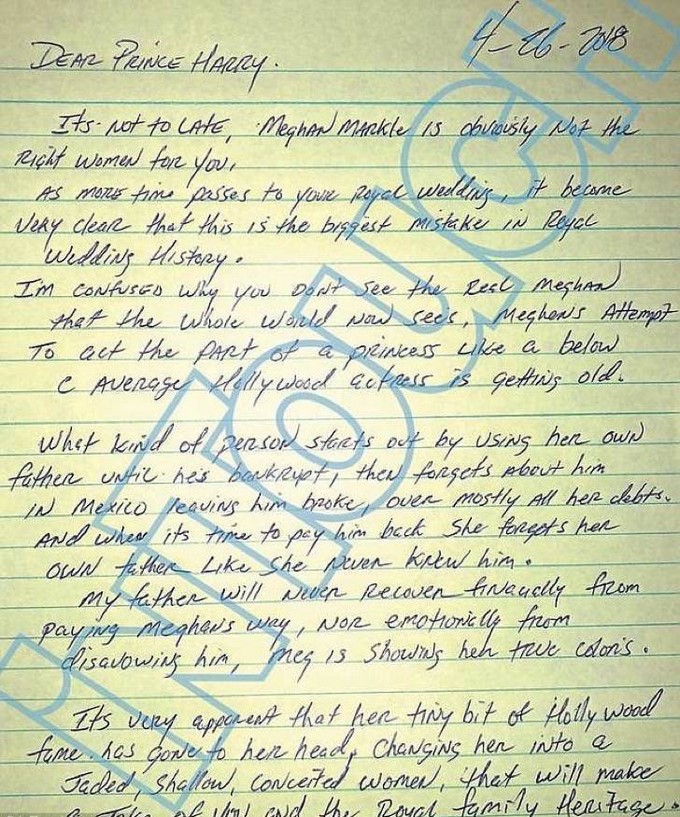 4-26-2018
DEAR PRINCE HARRY.
Its not to LATE, Meghan MARKLE is obviously Not the
Right women for you,
As more time passes to your Royal Wedding, it became
Very clear that this is the biggest mistake in Royal
Wedding History.
Im confused why you Don't see the Real Meghan
that the whole world Now sees, Meghan's Attempt
To act the PART of a princess Like a below
C Average Hollywood actress is getting old.
What kind of person starts out by using her own
father until he's bankrupt, then forgets about him
IN Mexico leaving him broke, over mostly All her debts.
And when its time to pay him back She forgets her
own father Like She Never Knew him.
My father will Never Recover finacially from
paying Meghans way, Nor emotionally from
disavowing him, Meg is showing her true colors.
Its very apparent that her tiny bit of Hollywood
fame has gone to her head, Changing her into a
Jaded, Shallow, Conceited women, that will make
a Joke of you and the Royal family Heritage.
InTouch